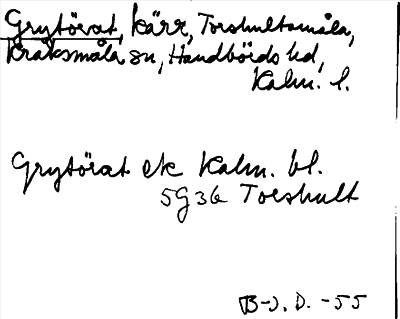 Grytövat, kärr, Torshultamåla,
Kråksmåla sn, Handbörds hd,
Kalm. l.
Grytövat ek Kalm. bl.
5G3b Torshult
B-J. D. -55